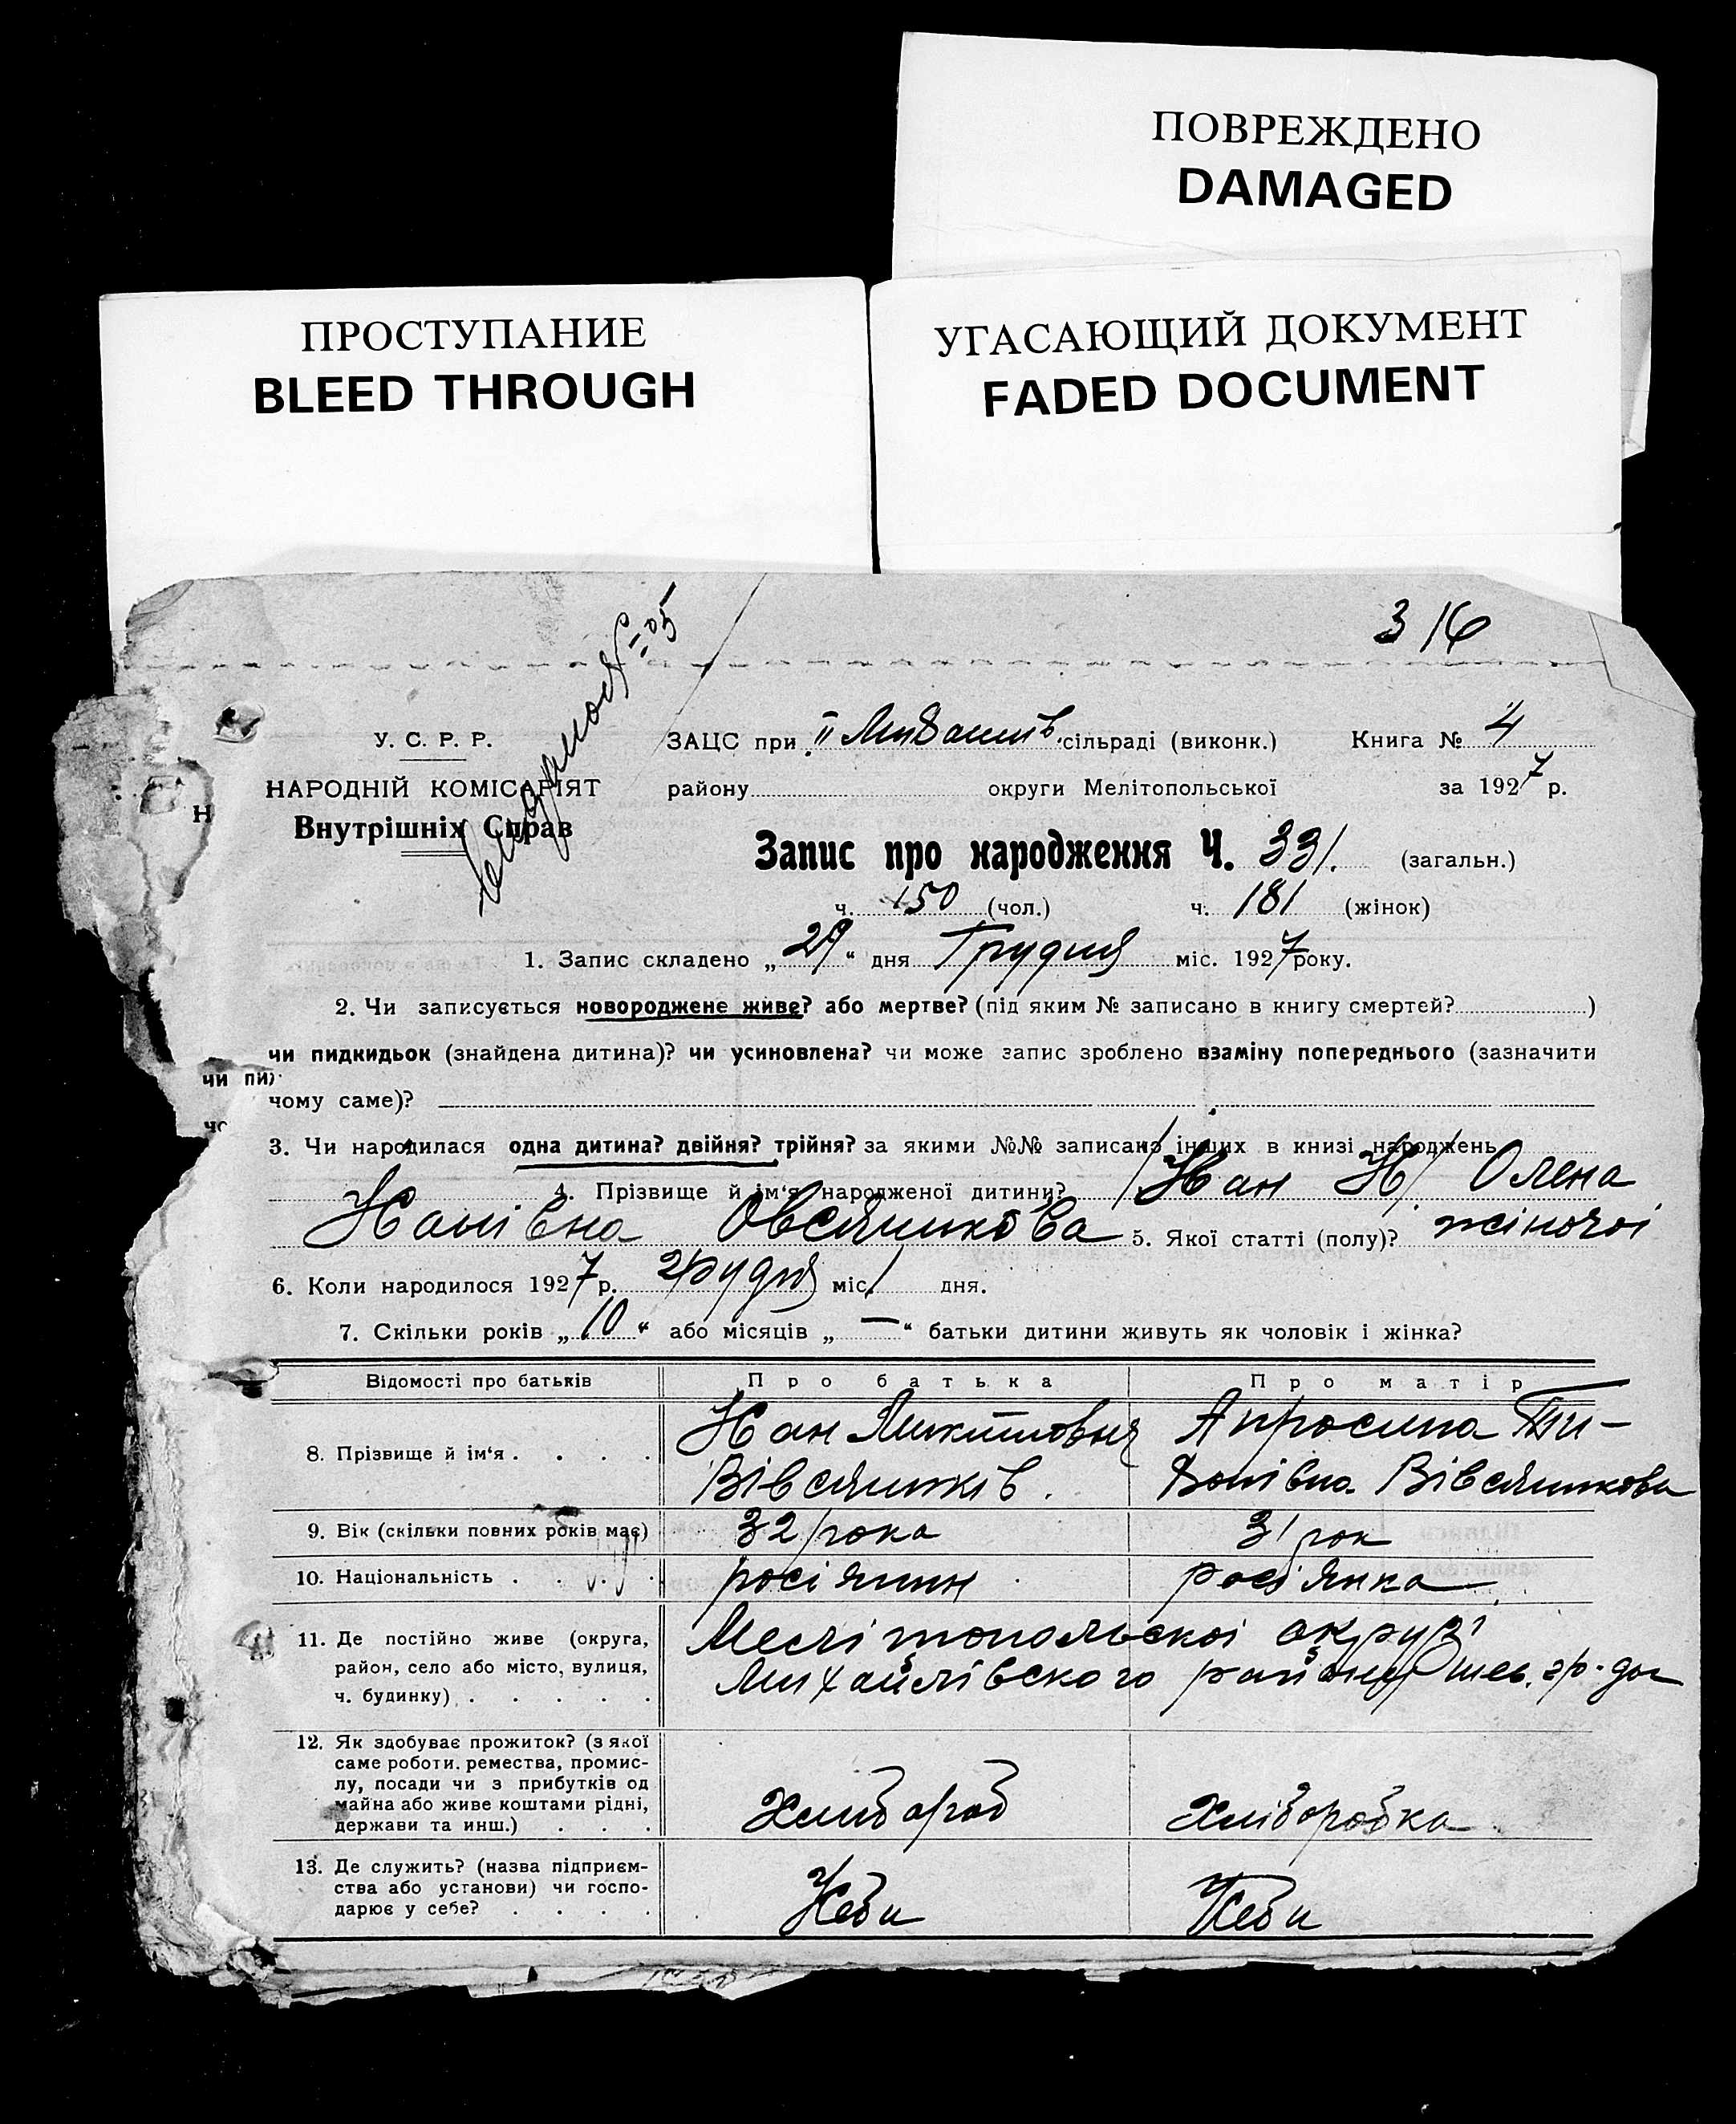 ПОВРЕЖДЕНО
DAMAGED
ПРОСТУПАНИЕ
BLEED THROUGH
УГАСАЮЩИЙ ДОКУМЕНТ
FADED DOCUMENT
316
У. С. Р. Р.
НАРОДНІЙ КОМІСАРІЯТ
Внутрішніх Справ
ЗАЦС при II сільраді (виконк.) Книга № 4
району округи Мелітопольської за 1927 р.
Запис про народження Ч. 331. (загальн.)
ч. 150 (чол.) ч. 181 (жінок)
1. Запис складено „29“ дня Грудня міс. 1927 року.
2. Чи записується новороджене живе? або мертве? (під яким № записано в книгу смертей? )
чи пидкидьок (знайдена дитина)? чи усиновлена? чи може запис зроблено взаміну попереднього (зазначити
чи пи
чому саме)?
3. Чи народилася одна дитина? двійня? трійня? за якими №№ записано інших в книзі народжень
4. Прізвище й ім‘я народженої дитини? Олена
Овсяникова 5. Якої статті (полу)? жіночоі
6. Коли народилося 1927 р. грудня міс. 1 дня.
7. Скільки років „10“ або місяців „—“ батьки дитини живуть як чоловік і жінка?
Відомості про батьків Про батька Про матір
8. Прізвище й ім‘я . . . .
Апросина Ти-
Вівсяників. Вівсяникова
9. Вік (скільки повних років має) 32 рока 31 рок
10. Національність . . . . росіянин росіянка
11. Де постійно живе (округа,
район, село або місто, вулиця,
ч. будинку) . . . . .
Мелітопольскоі округі
Михайлівского району
12. Як здобуває прожиток? (з якої
саме роботи. ремества, промис-
лу, посади чи з прибутків од
майна або живе коштами рідні,
держави та инш.) . . .
Хлибороб Хліборобка
13. Де служить? (назва підприєм-
ства або установи) чи госпо-
дарює у себе? . . . .